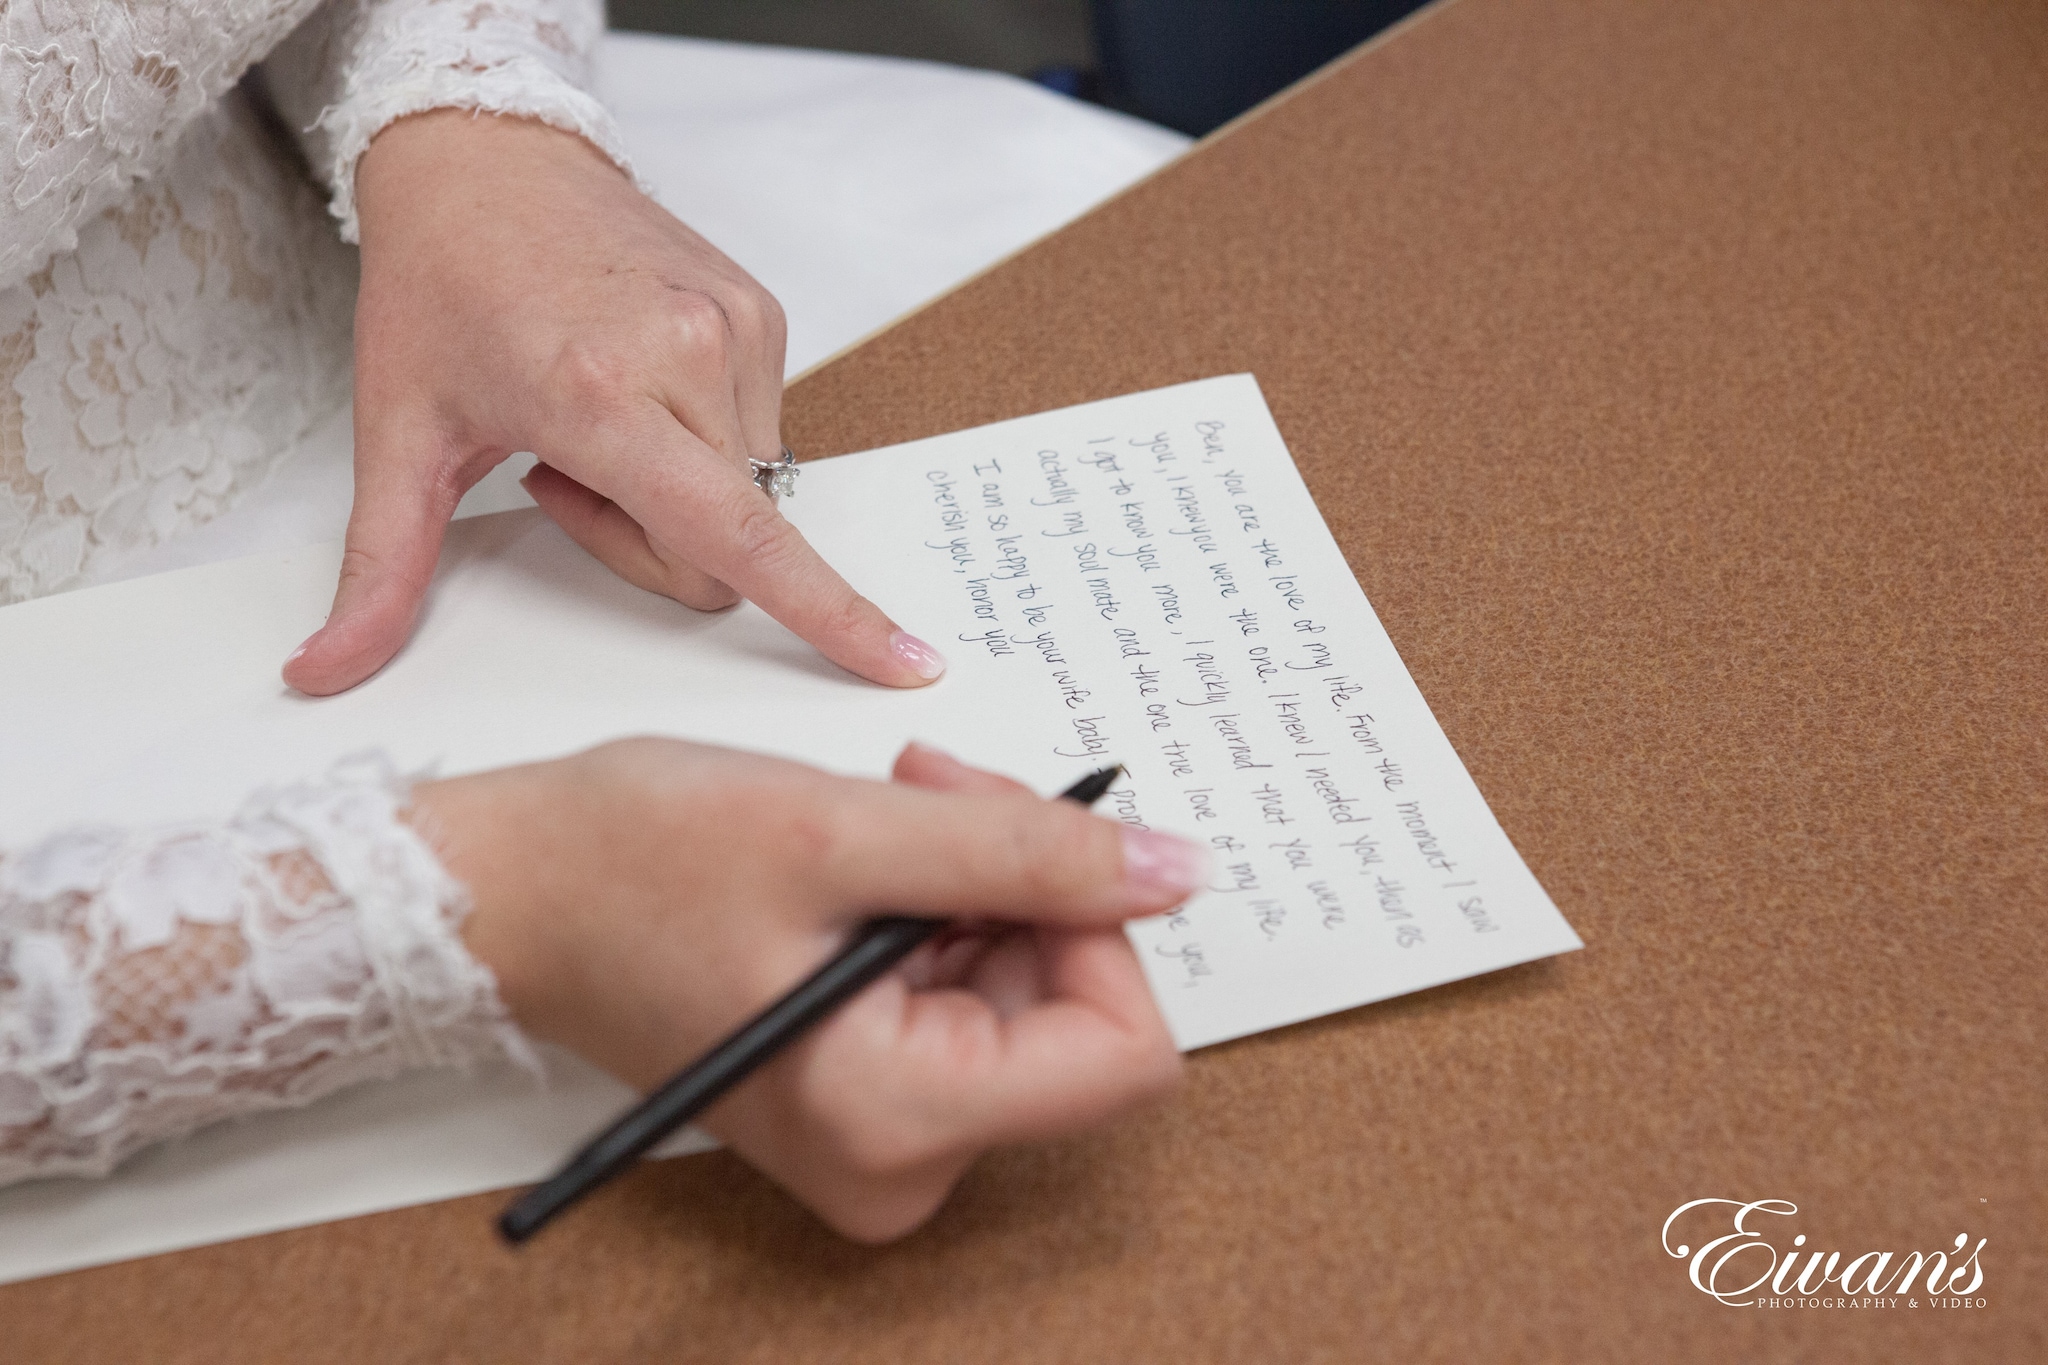 Ben, you are the love of my life. From the moment I saw
you, I knew you were the one. I knew I needed you, then as
I got to know you more, I quickly learned that you were
actually my soul mate and the one true love of my life.
I am so happy to be your wife baby. I prom you,
cherish you, honor you
Eivan's
PHOTOGRAPHY & VIDEO
TM